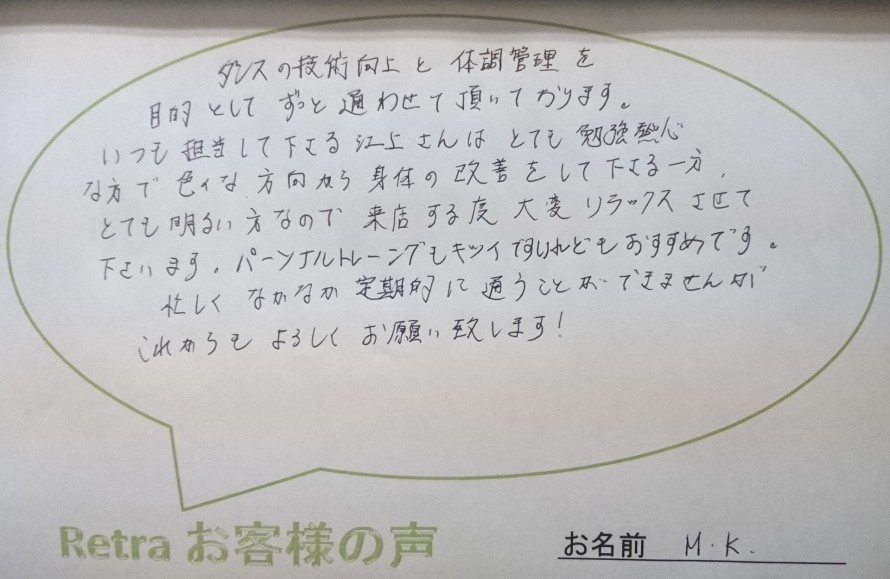 ダンスの技術向上と体調管理を
目的としてずっと通わせて頂いております。
いつも担当して下さる江上さんはとても勉強熱心
な方で色々な方向から身体の改善をして下さる一方、
とても明るい方なので来店する度大変リラックスさせて
下さいます。パーソナルトレーングもキツイですけれどもおすすめです。
忙しくなかなか定期的に通うことができませんが
これからもよろしくお願い致します!
Retra お客様の声
お名前 M.K.